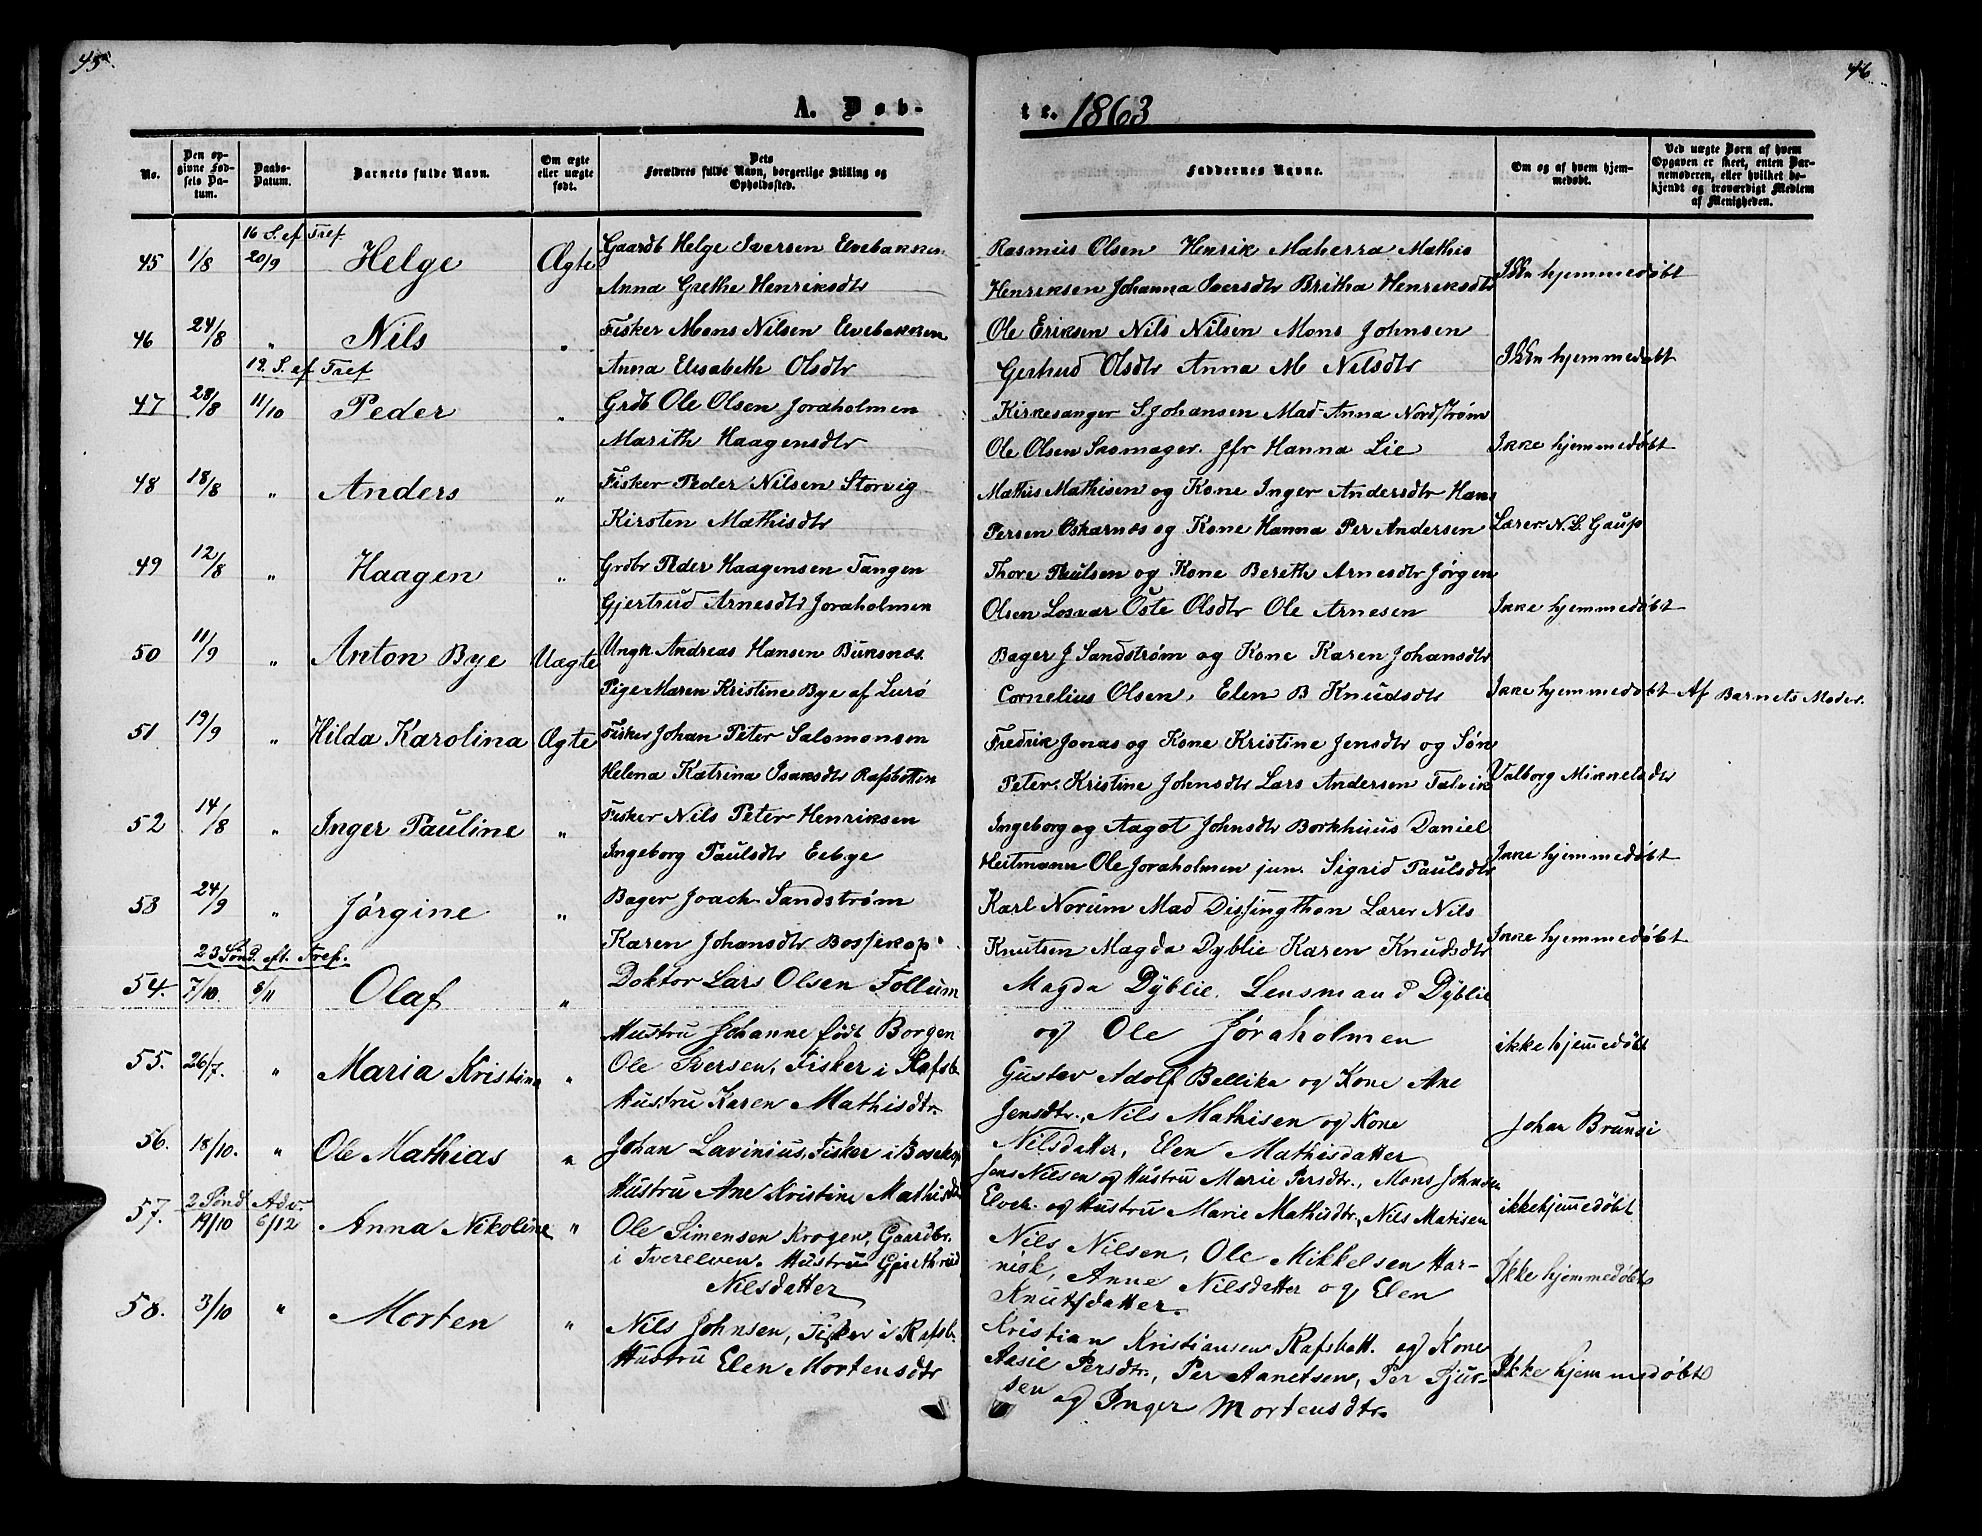 45
46
A. Døb-
te. 1863
No.
Den op-
givne Fød-
sels Da-
tum.
Daabs-
Datum.
Barnets fulde Navn.
Om ægte
eller uægte
født.
Dets
Forældres fulde Navn, borgerlige Stilling og
Opholdssted.
Faddernes Navne.
Om og af hvem hjem-
medøbt.
Ved uægte Børn af hvem
Opgaven er skeet, enten Bar-
nemoderen, eller hvilket be-
kjendt og troværdigt Medlem
af Menigheden.
16 S. ef Tref
45 1/8 20/9 Helge Ægte Gaardb Helge Iversen Elvebakken Rasmus Olsen Henrik Maherra Mathis
Anna Grethe Henriksdtr Henriksen Johanna Iversdtr Britha Henriksdtr Ikke hjemmedøbt
46 24/8 " Nils " Fisker Mons Nilsen Elvebakken Ole Eriksen Nils Nilsen Mons Johnsen
19. S. ef Tref Anna Elisabeth Olsdtr Gertrud Olsdtr Anna M Nilsdtr Ikke hjemmedøbt
47 28/8 11/10 Peder " Grdb Ole Olsen Joraholmen Kirkesanger S. Johansen Mad Anna Nordstrøm
Marith Haagensdtr Ole Olsen Skomager. Jfr Hanna Lie Ikke hjemmedøbt
48 18/8 " Anders " Fisker Peder Nilsen Storvig Mathis Mathisen og Kone Inger Andersdtr Hans
Kirsten Mathisdtr Persen Oskarnæs og Kone Hanna Per Andersen Lærer N. L. Gaup
49 12/8 " Haagen " Grdbr Peder Haagensen Tangen Thore Paulsen og Kone Bereth Arnesdtr Jørgen
Gjertrud Arnesdtr Joraholmen Olsen Losvar Oste Olsdtr Ole Arnesen Ikke hjemmedøbt
50 11/9 " Anton Bye Uægte Ungk Andreas Hansen Buksnæs. Bager J Sandstrøm og Kone Karen Johansdtr
Pige Maren Kristine Bye af Lurø Cornelius Olsen, Elen B Knudsdtr Ikke hjemmedøbt Af Barnets Moder.
51 19/9 " Hilda Karolina Ægte Fisker Johan Peter Salomonsen Fredrik Jonas og Kone Kristine Jensdtr og Søn
Helena Katrina Isaksdtr Rafsbotten Peter. Kristine Johnsdtr Lars Andersen Talvik Valborg Mikkelsdtr
52 14/8 " Inger Pauline " Fisker Nils Peter Henriksen Ingeborg og Aagot Johnsdtr Borkhuus Daniel
Ingeborg Paulsdtr Eebye Heitmann Ole Joraholmen jun. Sigrid Paulsdtr Ikke hjemmedøbt
53 24/9 " Jørgine " Bager Joach. Sandstrøm Karl Norum Mad Dissingthon Lærer Nils
Karen Johansdtr Bossekop Knutsen Magda Dyblie Karen Knudsdtr Ikke hjemmedøbt
23 Sønd. eft. Tref.
54. 7/10. 8/11 Olaf " Doktor Lars Olsen Follum Magda Dyblie. Lensmand Dyblie
Hustru Johanne født Borgen og Ole Jøraholmen ikke hjemmedøbt
55. 26/7. " Maria Kristina " Ole Iversen, Fisker i Rafsb. Gustav Adolf Bellika og Kone Ane
Hustru Karen Mathisdtr. Jensdtr., Nils Mathisen og Kone Johan Brunsi
56. 18/10. " Ole Mathias " Johan Lavinius, Fisker i Bosekop Nilsdatter, Elen Mathisdatter
Hustru Ane Kristine Mathisdtr Jens Nilsen og Hustru Marie Persdtr., Mons Johnsen
2 Sønd. Adv. Elveb. og Hustru Marie Mathisdtr., Nils Matisen ikke hjemmedøbt
57. 19/10 6/12 Anna Nikoline " Ole Simensen Krogen, Gaardbr. Nils Nilsen, Ole Mikkelsen Har-
i Tverelven. Hustru Gjerthrud niok, Anne Nilsdatter og Elen Ikke hjemmedøbt
Nilsdatter Knutsdatter.
58. 3/10 " Morten " Nils Johnsen, Fisker i Rafsb. Kristian Kristiansen Rafsbott. og Kone
Hustru Elen Mortensdtr Aasie Persdtr., Per Aanetsen, Per Pjur- Ikke hjemmedøbt
sen og Inger Mortensdtr.